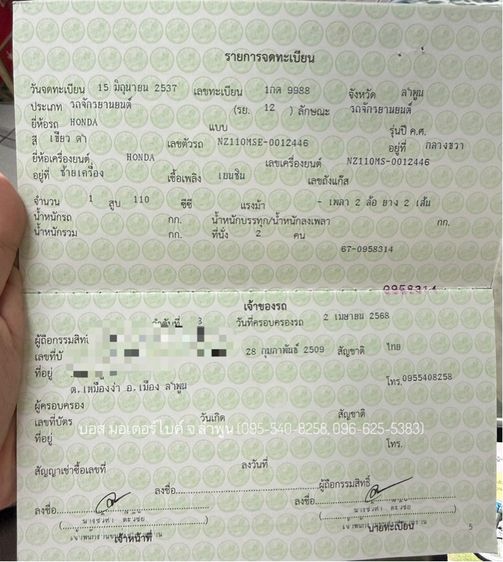 รายการจดทะเบียน
วันจดทะเบียน 15 มิถุนายน 2537 เลขทะเบียน 1กค 9988 จังหวัด ลำพูน
ประเภท รถจักรยานยนต์ (รย. 12 ) ลักษณะ รถจักรยานยนต์
ยี่ห้อรถ HONDA แบบ รุ่นปี ค.ศ.
สี เขียว ดำ เลขตัวรถ NZ110MSE-0012446 อยู่ที่ กลางขวา
ยี่ห้อเครื่องยนต์ HONDA เลขเครื่องยนต์ NZ110MS-0012446
อยู่ที่ ซ้ายเครื่อง เชื้อเพลิง เบนซิน เลขถังแก๊ส
จำนวน 1 สูบ 110 ซีซี แรงม้า - เพลา 2 ล้อ ยาง 2 เส้น
น้ำหนักรถ กก. น้ำหนักบรรทุก/น้ำหนักลงเพลา กก.
น้ำหนักรวม กก. ที่นั่ง 2 คน
67-0958314
0958314
เจ้าของรถ
ลำดับที่ 3 วันที่ครอบครองรถ 2 เมษายน 2568
ผู้ถือกรรมสิทธิ์
เลขที่บั 28 กุมภาพันธ์ 2509 สัญชาติ ไทย
ที่อยู่
ต.เหมืองง่า อ.เมือง ลำพูน โทร.0955408258
ผู้ครอบครอง
เลขที่บัตร วันเกิด สัญชาติ
บอส มอเตอร์ไบค์ จ.ลำพูน (095-540-8258, 096-625-5383)
ที่อยู่ โทร.
สัญญาเช่าซื้อเลขที่ ลงวันที่
ลงชื่อ ผู้ถือกรรมสิทธิ์
ลงชื่อ ลงชื่อ
เจ้าหน้าที่ นายทะเบียน
5